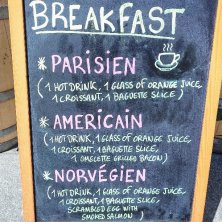 BREAKFAST
* PARISIEN
(1 HOT DRINK, 1 GLASS OF ORANGE JUICE,
1 CROISSANT, 1 BAGUETTE SLICE)
* AMERICAIN
(1 HOT DRINK, 1 GLASS OF ORANGE JUICE,
1 CROISSANT, 1 BAGUETTE SLICE,
1 OMELETTE GRILLED BACON)
* NORVÉGIEN
(1 HOT DRINK, 1 GLASS OF ORANGE JUICE,
1 CROISSANT, 1 BAGUETTE SLICE,
SCRAMBLED EGG WITH
SMOKED SALMON)